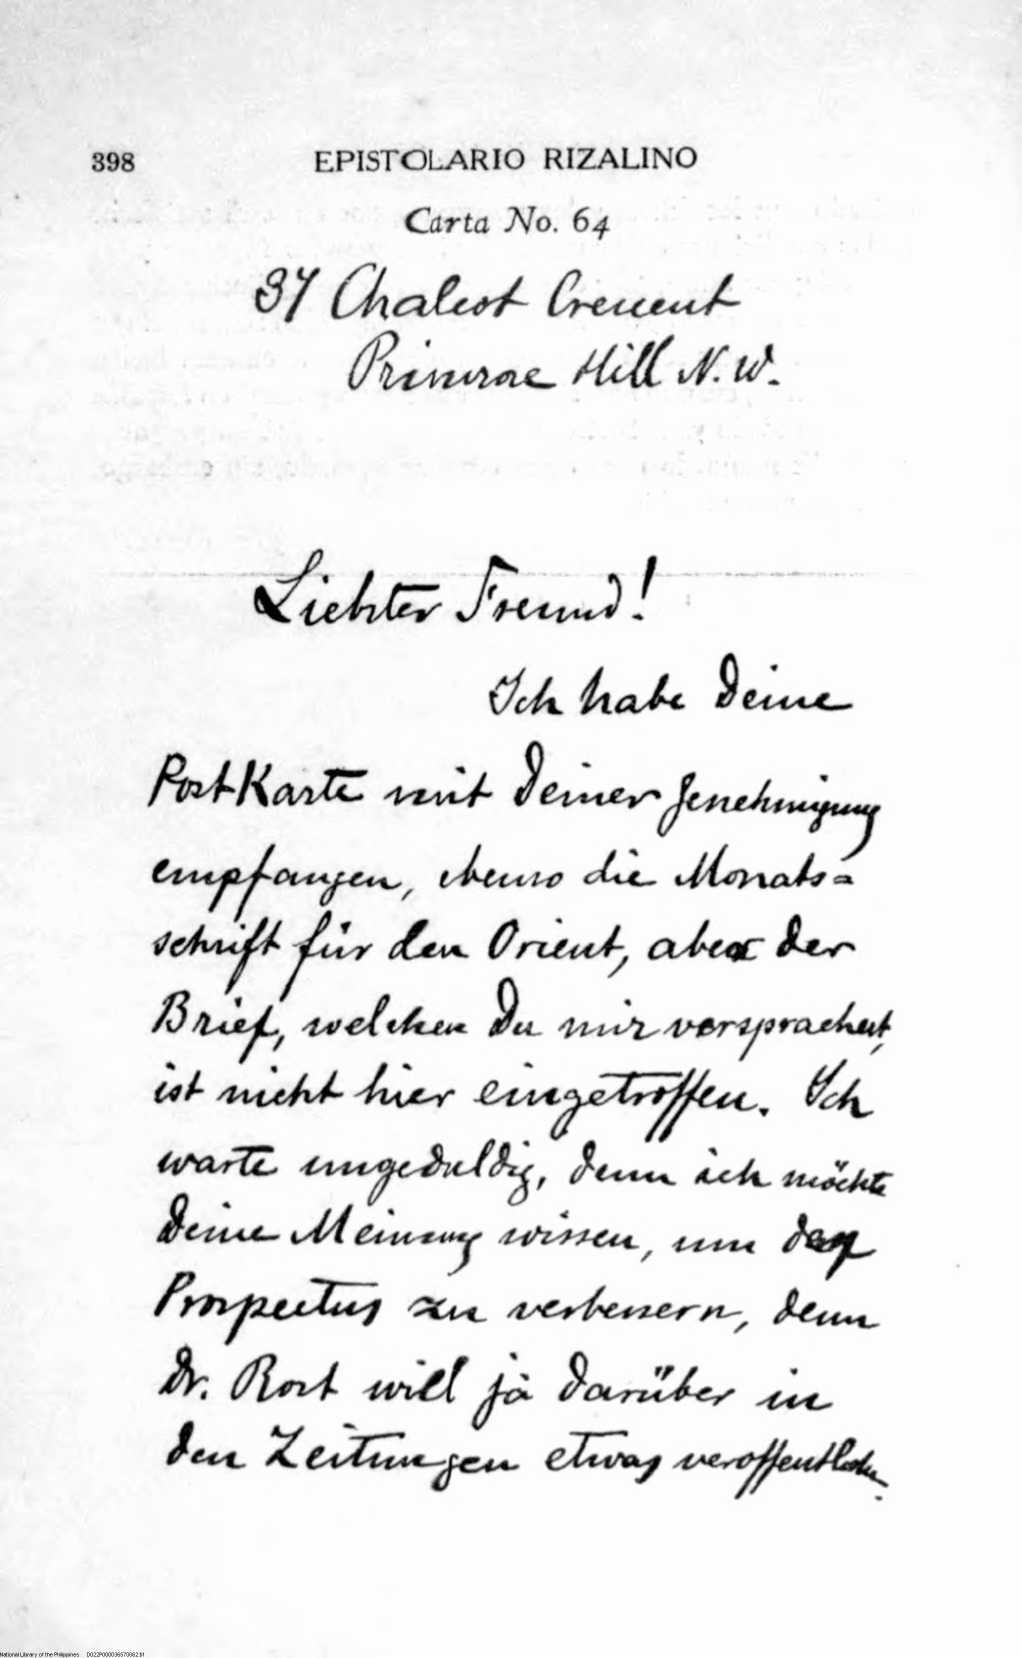 398 EPISTOLARIO RIZALINO
Carta No. 64
37 Chalcot Crescent
Primrose Hill N. W.
Liebster Freund!
Ich habe Deine
PostKarte mit Deiner Genehmigung
empfangen, ebenso die Monats=
schrift für den Orient, aber der
Brief, welchen Du mir versprachest,
ist nicht hier eingetroffen. Ich
warte ungeduldig, denn ich möchte
Deine Meinung wissen, um den
Prospectus zu verbessern, denn
Dr. Rost will ja darüber in
den Zeitungen etwas veroffentlichen.
National Library of the Philippines